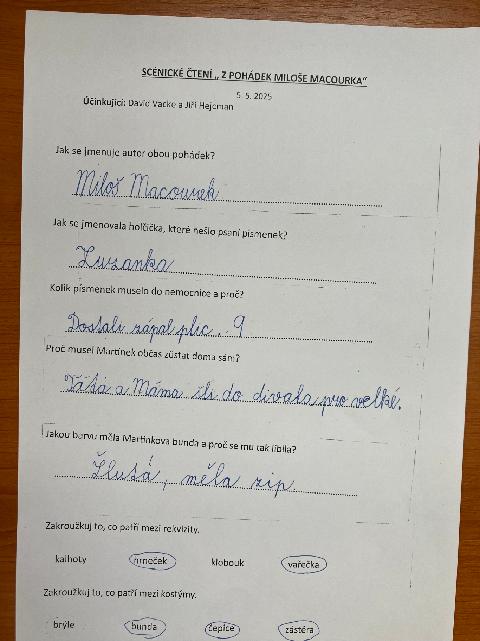 SCÉNICKÉ ČTENÍ „ Z POHÁDEK MILOŠE MACOURKA“
5. 5. 2025
Účinkující: David Vacke a Jiří Hejcman
Jak se jmenuje autor obou pohádek?
Miloš Macourek
Jak se jmenovala holčička, které nešlo psaní písmenek?
Zuzanka
Kolik písmenek muselo do nemocnice a proč?
Dostali zápal plic. 9
Proč musel Martínek občas zůstat doma sám?
Táta a Máma šli do divala pro velké.
Jakou barvu měla Martínkova bunda a proč se mu tak líbila?
Žlutá, měla zip
Zakroužkuj to, co patří mezi rekvizity.
kalhoty hrneček klobouk vařečka
Zakroužkuj to, co patří mezi kostýmy.
brýle bunda čepice zástěra